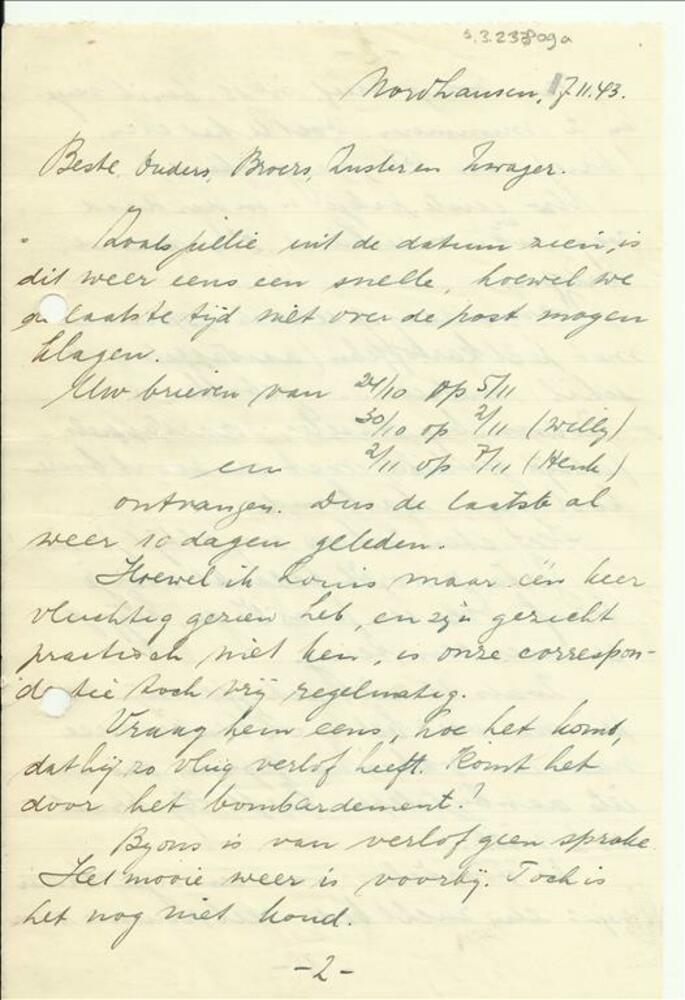 Nordhausen, 17.11.43.
Beste Ouders, Broers, Zuster en Zwager.
Zoals jullie uit de datum zien, is
dit weer eens een snelle, hoewel we
de laatste tijd niet over de post mogen
klagen.
Uw brieven van 24/10 op 5/11
30/10 op 2/11 (Willy)
en 2/11 op 7/11 (Henk)
ontvangen. Dus de laatste al
weer 10 dagen geleden.
Hoewel ik Louis maar één keer
vluchtig gezien heb, en zijn gezicht
practisch niet ken, is onze correspon-
dentie toch vrij regelmatig.
Vraag hem eens, hoe het komt,
dat hij zo vlug verlof heeft. Komt het
door het bombardement?
By ons is van verlof geen sprake.
Het mooie weer is voorbij. Toch is
het nog niet koud.
-2-